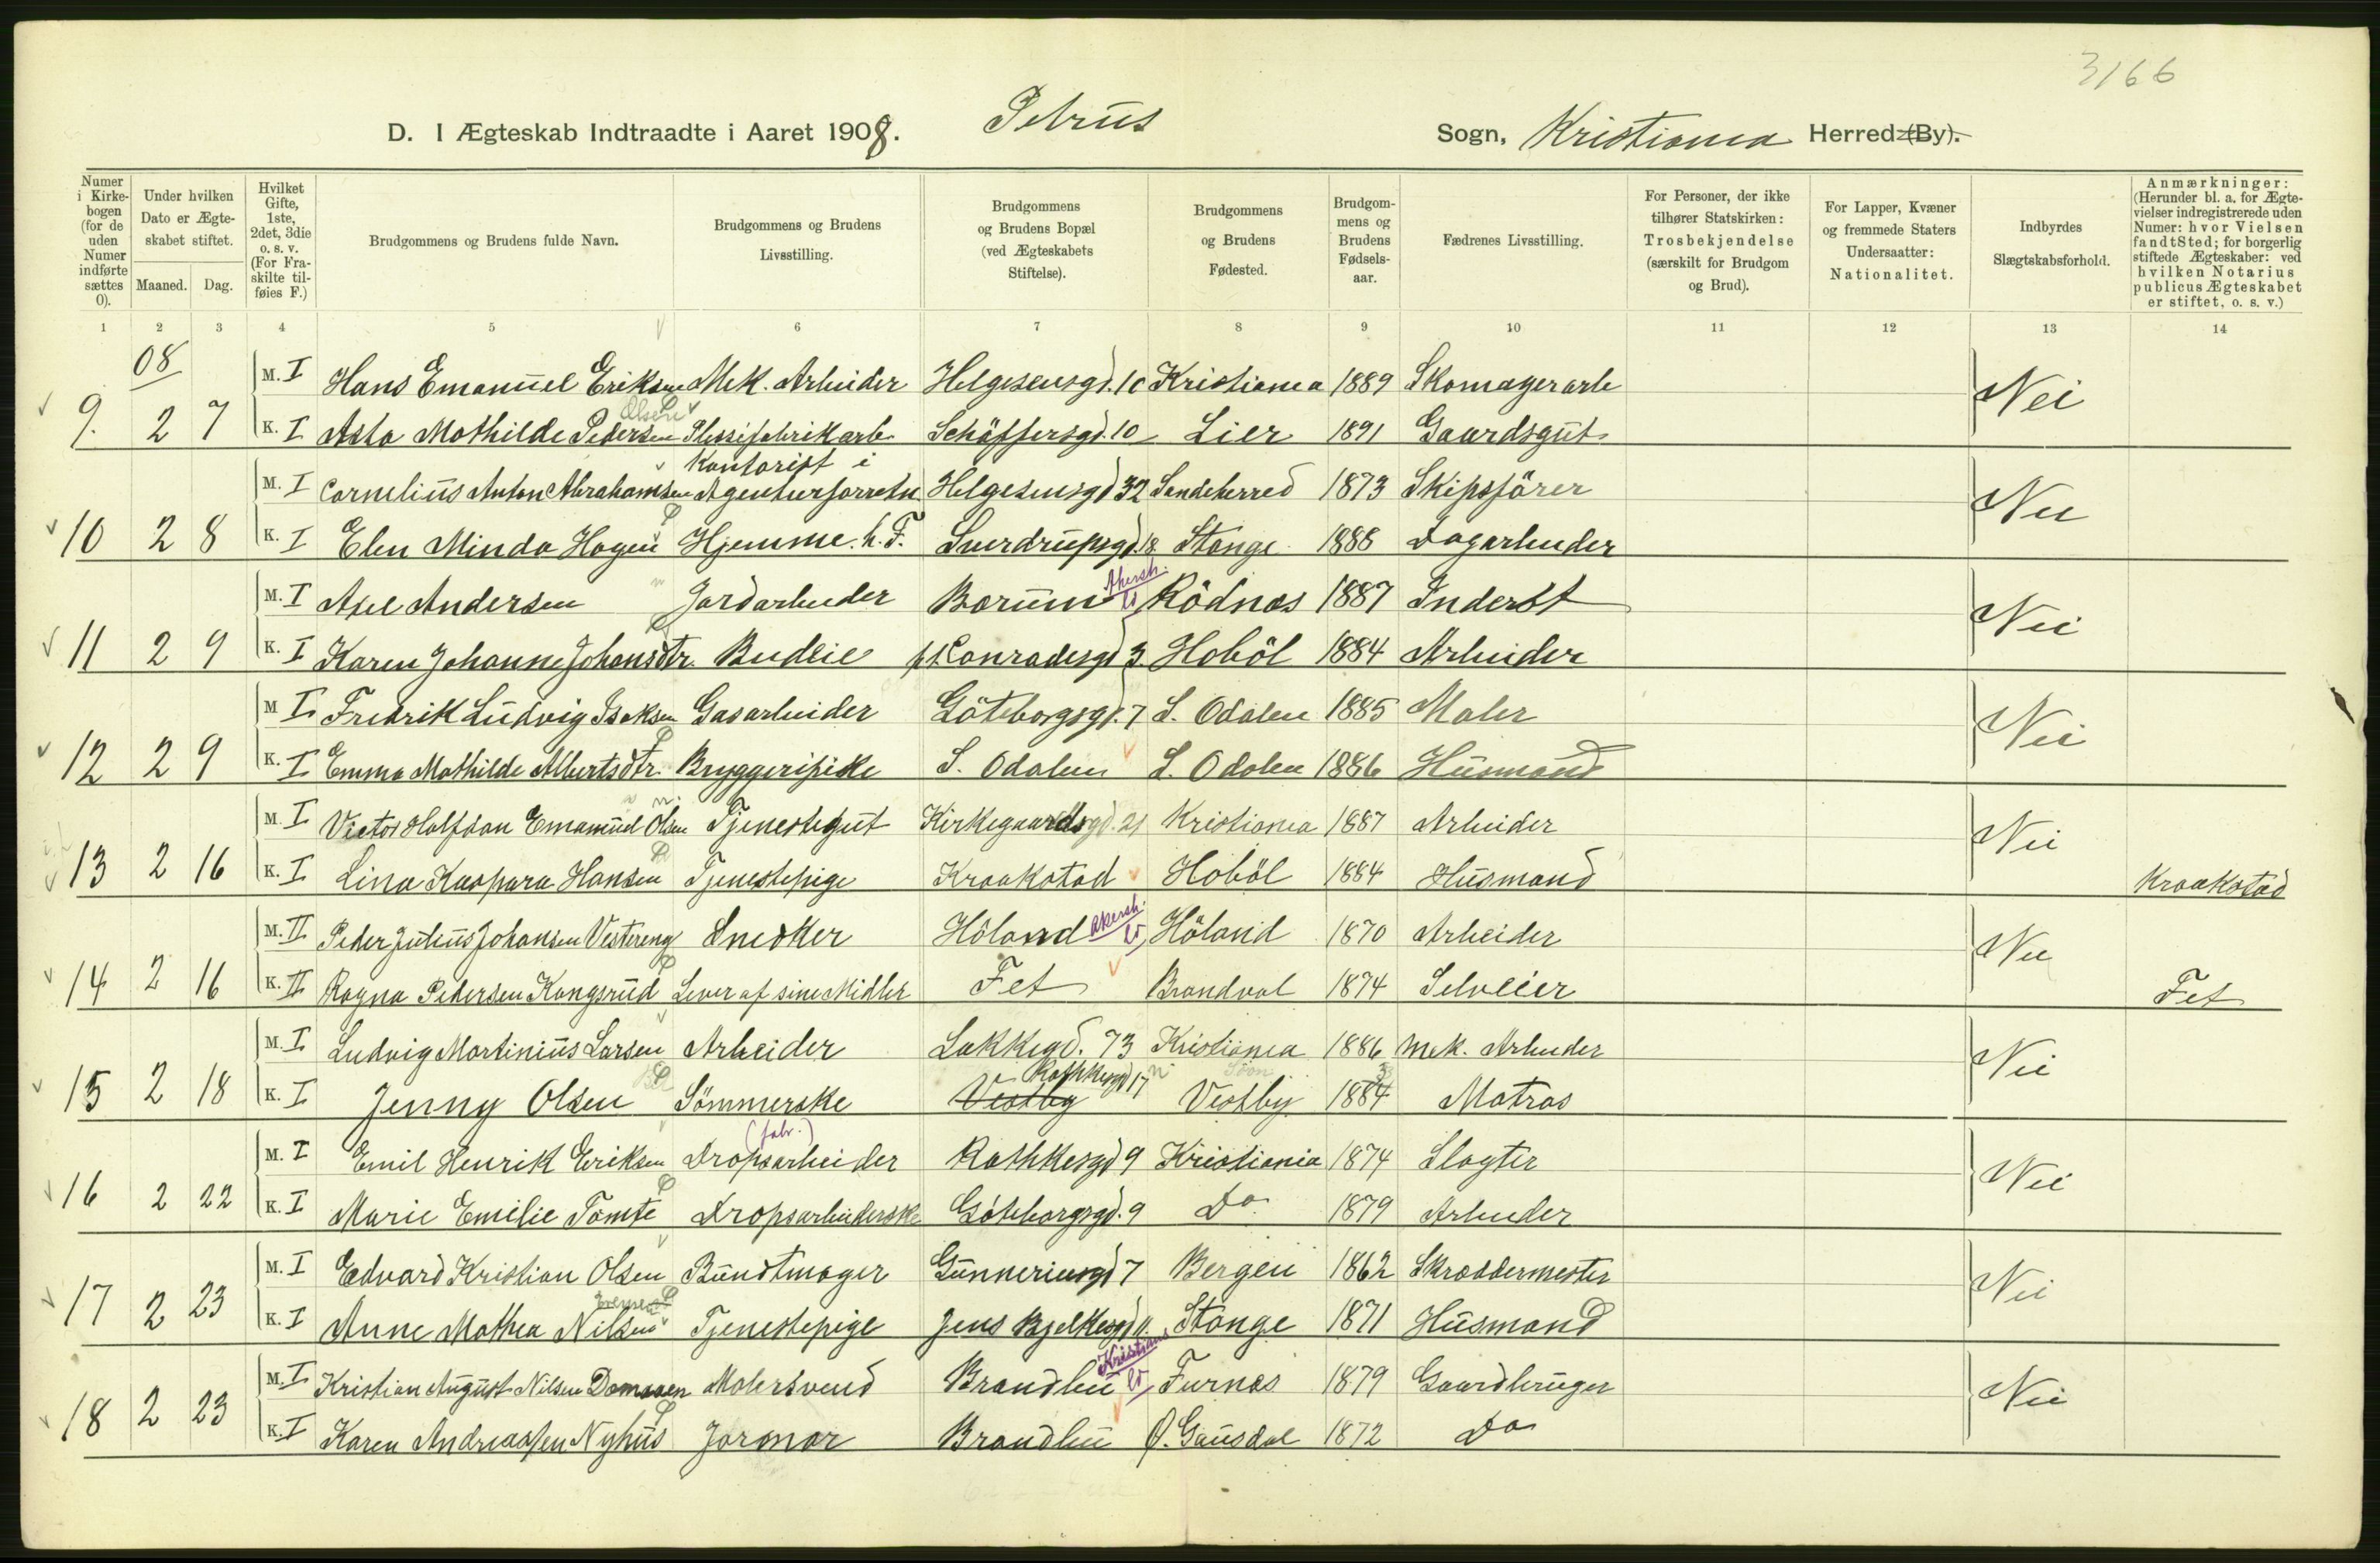 3166
D. I Ægteskab Indtraadte i Aaret 1908. Petrus Sogn, Kristiania Herred (By).
Numer i Kirkebogen (for de uden Numer indførte sættes 0).
Under hvilken Dato er Ægteskabet stiftet.
Maaned. Dag.
Hvilket Gifte, 1ste, 2det, 3die o. s. v. (For Fraskilte tilføies F.)
Brudgommens og Brudens fulde Navn.
Brudgommens og Brudens Livsstilling.
Brudgommens og Brudens Bopæl (ved Ægteskabets Stiftelse).
Brudgommens og Brudens Fødested.
Brudgommens og Brudens Fødselsaar.
Fædrenes Livsstilling.
For Personer, der ikke tilhører Statskirken: Trosbekjendelse (særskilt for Brudgom og Brud).
For Lapper, Kvæner og fremmede Staters Undersaatter: Nationalitet.
Indbyrdes Slægtskabsforhold.
Anmærkninger: (Herunder bl. a. for Ægtevielser indregistrerede uden Numer: hvor Vielsen fandt Sted; for borgerlig stiftede Ægteskaber: ved hvilken Notarius publicus Ægteskabet er stiftet, o. s. v.)
1 2 3 4 5 6 7 8 9 10 11 12 13 14
08
M. I Hans Emanuel Eriksen Mek. Arbeider Helgesensgd. 10 Kristiania 1889 Skomagerarb Nei
Olsen
9. 2 7 K. I Asta Mathilde Pedersen Plessefabrikarb. Schöffersgd. 10 Lier 1891 Gaardsgut
Kontorist i
M. I Cornelius Anton Abrahamsen Agenturforretn Helgesensgd 32 Sandeherred 1873 Skipsförer Nei
10 2 8 K. I Elen Minda Hagen Hjemme h. F. Sverdrupsgd. 18 Stange 1888 Dagarbeider
Akersh.
M. I Axel Andersen Jordarbeider Bærum Rödnæs 1887 Inderst Nei
11 2 9 K. I Karen Johanne Johansdtr. Budeie Conradesgd 3. Hoböl 1884 Arbeider
M I Fredrik Ludvig Isaksen Gasarbeider Göteborgsgd. 7 S. Odalen 1885 Maler Nei
12 2 9 K. I Emma Mathilde Albertsdtr. Bryggeripike S. Odalen S. Odalen 1886 Husmand
M. I Victor Halfdan Emanuel Olsen Tjenestegut Kirkegaardsgd. 21 Kristiania 1887 Arbeider Nei
13 2 16 K. I Lina Kaspara Hansen Tjenestepige Kraakstad Hoböl 1884 Husmand Kraakstad
Akersh.
M. II Peder Julius Johansen Vestereng Snedker Höland Höland 1870 Arbeider Nei
14 2 16 K. II Ragna Pedersen Kongsrud Lever af sine Midler Fet Brandval 1874 Selveier Fet
M. I Ludvig Martinius Larsen Arbeider Lakkegd. 73 Kristiania 1886 Mek. Arbeider Nei
Rathkesgd 17
15 2 18 K. I Jenny Olsen Sömmerske Vestby Vestby 1884 Matros
(fabr.)
M. I Emil Henrik Eriksen Dropsarbeider Rathkesgd 9 Kristiania 1874 Slagter Nei
16 2 22 K. I Marie Emilie Tomte Dropsarbeiderske Göteborgsgd. 9 Do 1879 Arbeider
M. I Edvard Kristian Olsen Bundtmager Gunneriusgd 7 Bergen 1862 Skræddermester Nei
17 2 23 K. I Anne Mathea Nilsen Tjenestepige Jens Bjelkesgd 11. Stange 1871 Husmand
Kristians
M. I Kristian August Nilsen Domaaen Malersvend Brandbu Furnes 1879 Gaardbruger Nei
18 2 23 K. I Karen Andreassen Nyhus Jormor Brandbu Ø. Gausdal 1872 Do